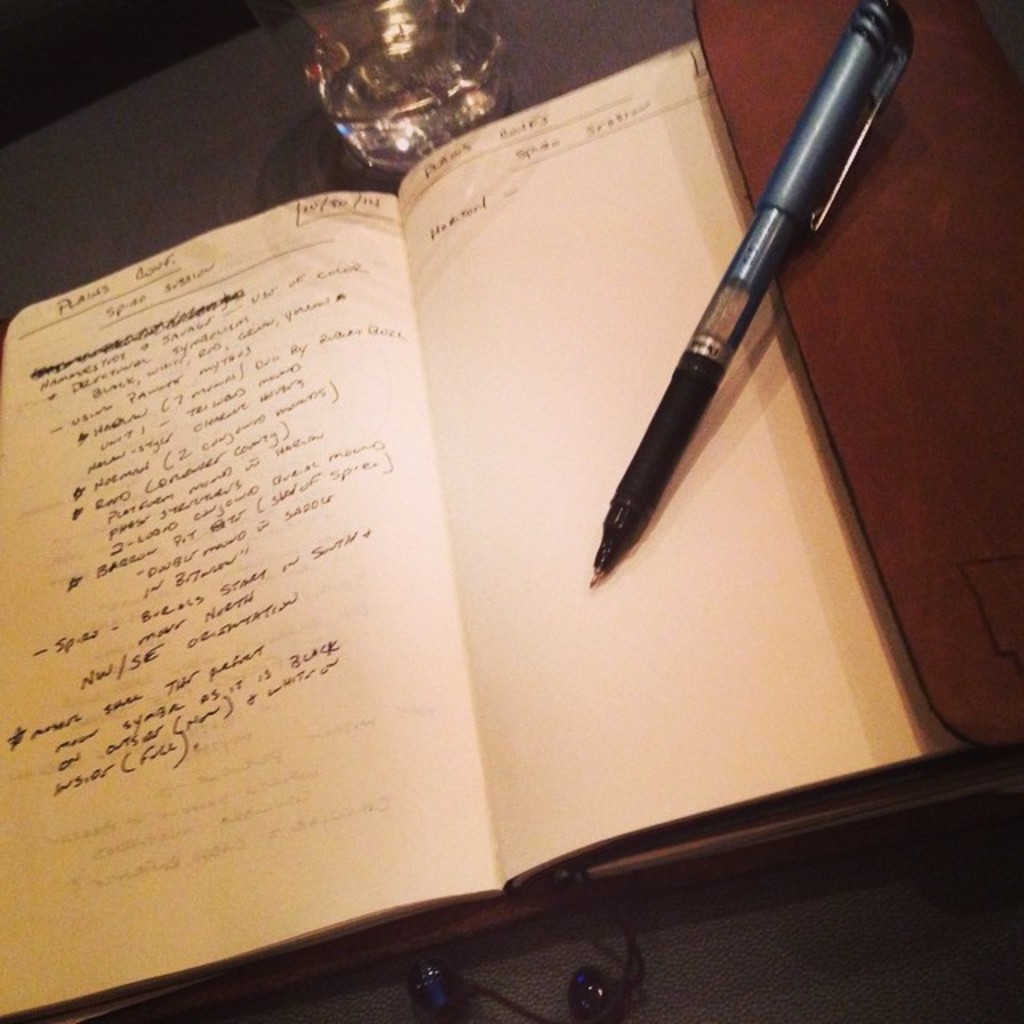 10/30/14
PLAINS CONF.
SPIRO SESSION
HAMMERSTEDT & SAVAGE - USE OF COLOR
& DIRECTIONAL SYMBOLISM
BLACK, WHITE, RED, GREEN, YELLOW &
- USING PAWNEE MYTHS
* HARLAN (7 MOUNDS) DUG BY ROBERT BELL
UNIT 1 - TRI-LOBED MOUND
HARLAN-STYLE CHARNEL HOUSES
* NORMAN (2 CONJOINED MOUNDS)
* REED (DELAWARE COUNTY)
PLATFORM MOUND w HARLAN
PHASE STRUCTURES
2-LOBED CONJOINED BURIAL MOUND
* BARROW PIT SITE (SW OF SPIRO)
- DOUBLE MOUND w SADDLE
IN BETWEEN
- SPIRO - BURIALS START IN SOUTH &
MOVE NORTH
NW/SE ORIENTATION
* SHELL THAT
MOON SYMBOL AS IT IS BLACK
ON OUTSIDE (NEW) & WHITE ON
INSIDE (FULL).
PLAINS CONF.
SPIRO SESSION
HORTON -